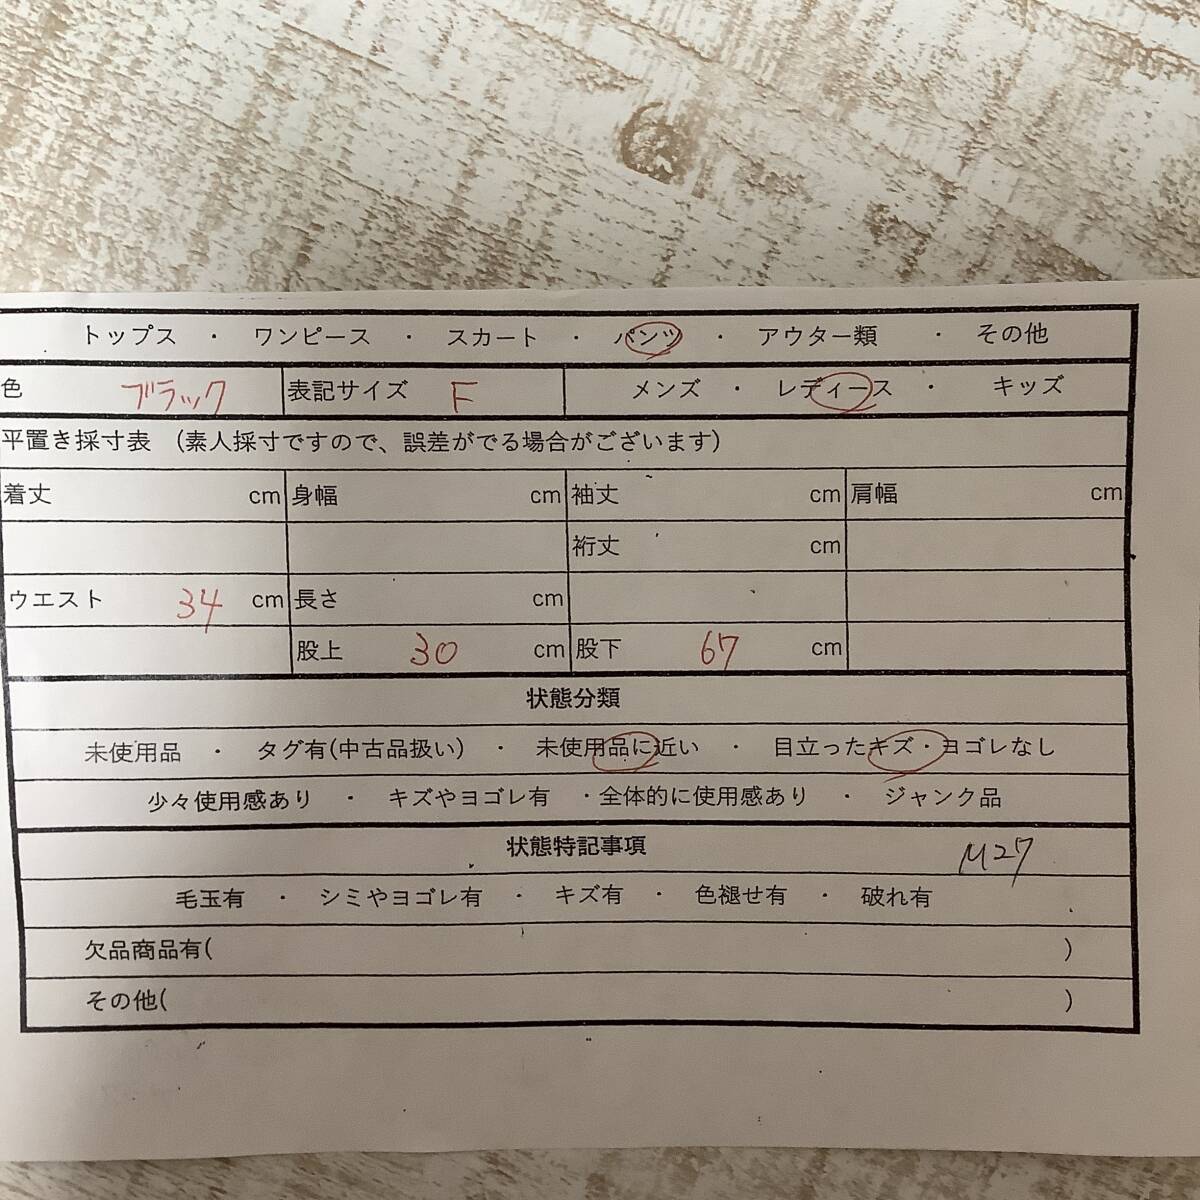 トップス ・ ワンピース ・ スカート ・ パンツ ・ アウター類 ・ その他
色 ブラック 表記サイズ F メンズ ・ レディース ・ キッズ
平置き採寸表 (素人採寸ですので、誤差がでる場合がございます)
着丈 cm 身幅 cm 袖丈 cm 肩幅 cm
裄丈 cm
ウエスト 34 cm 長さ cm
股上 30 cm 股下 67 cm
状態分類
未使用品 ・ タグ有(中古品扱い) ・ 未使用品に近い ・ 目立ったキズ・ヨゴレなし
少々使用感あり ・ キズやヨゴレ有 ・全体的に使用感あり ・ ジャンク品
状態特記事項 M27
毛玉有 ・ シミやヨゴレ有 ・ キズ有 ・ 色褪せ有 ・ 破れ有
欠品商品有( )
その他( )